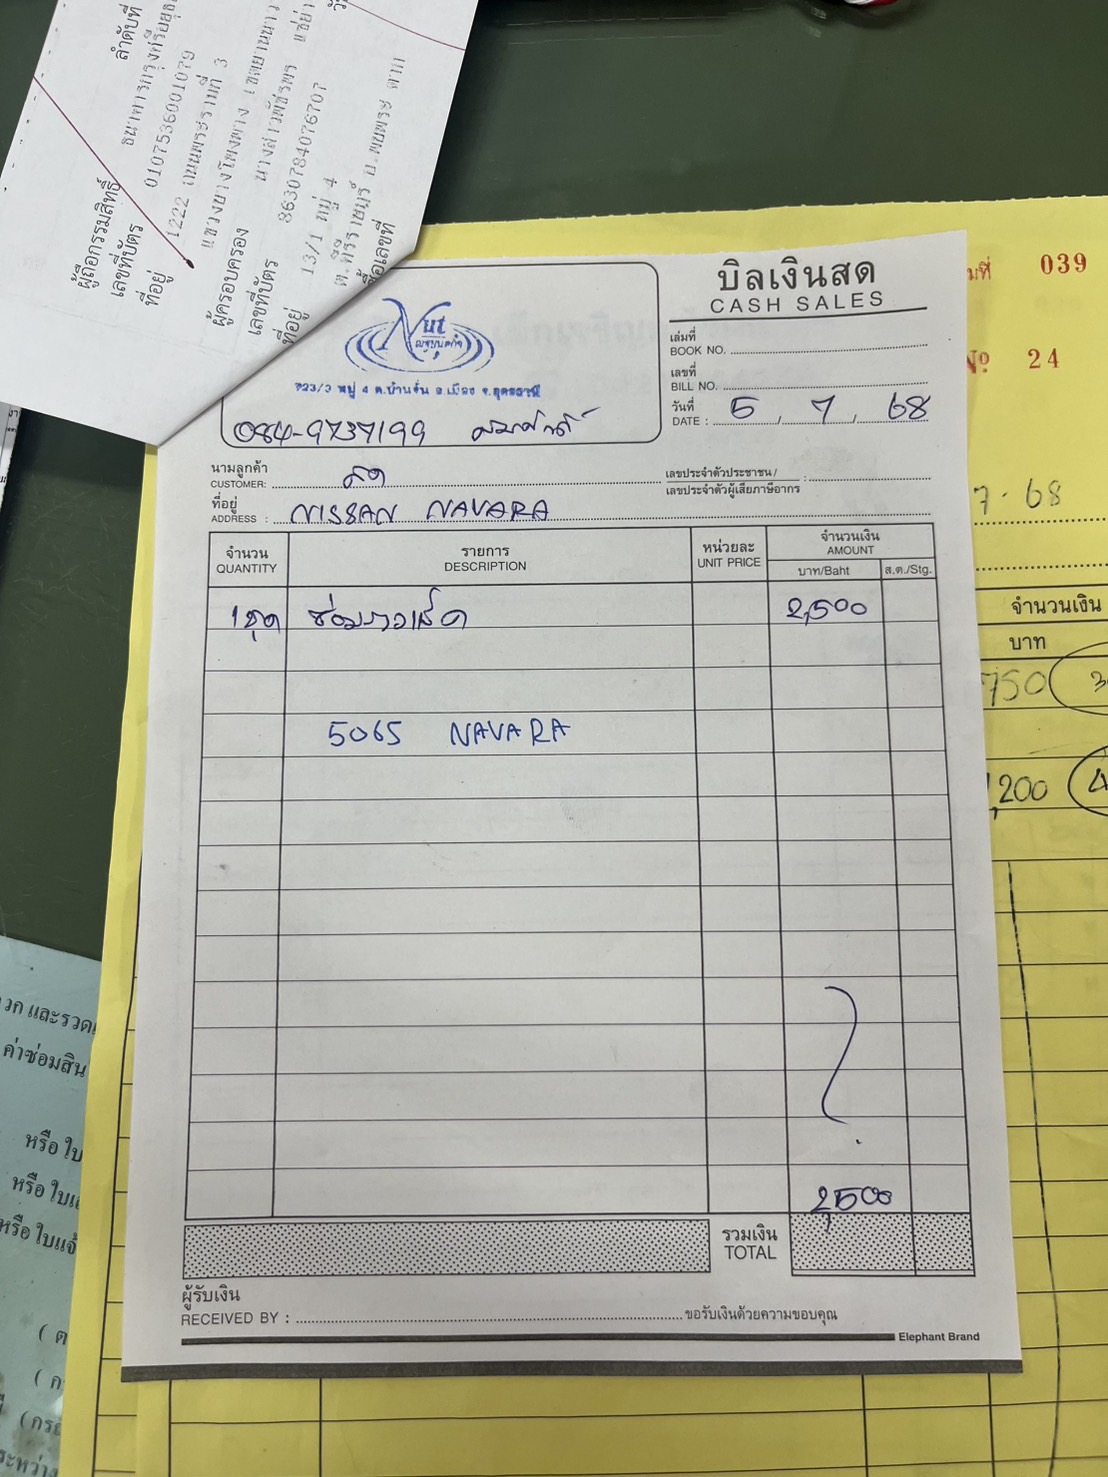 ลำดับที่
ผู้ถือกรรมสิทธิ์ ธนาคารกรุงศรีอยุธ
เลขที่บัตร 0107536001079
ที่อยู่ 1222 ถนนพระรามที่ 3
แขวงบางโพงพาง เขตยานนาว
ผู้ครอบครอง นางสาวพัชรพร แซ่ย่า
เลขที่บัตร 8630784076707
ที่อยู่ 13/1 หมู่ 4
อ.พบพระ ตาก
บิลเงินสด
CASH SALES
เล่มที่
BOOK NO.
เลขที่
BILL NO.
วันที่
DATE : 5 / 7 / 68
Nut
723/3 หมู่ 4 ต.บ้านจั่น อ.เมือง จ.อุดรธานี
084-9737199
นามลูกค้า
CUSTOMER: สด
เลขประจำตัวประชาชน /
เลขประจำตัวผู้เสียภาษีอากร :
ที่อยู่
ADDRESS : NISSAN NAVARA
จำนวน รายการ หน่วยละ จำนวนเงิน
QUANTITY DESCRIPTION UNIT PRICE AMOUNT
บาท/Baht ส.ต./Stg.
1ชุด 2,500
5065 NAVARA
2,500
รวมเงิน
TOTAL
ผู้รับเงิน
RECEIVED BY : ขอรับเงินด้วยความขอบคุณ
Elephant Brand
มที่ 039
Nº 24
7.68
จำนวนเงิน
บาท
750
,200
วก และรวด
ค่าซ่อมสิน
หรือ ใบ
หรือ ใบเ
หรือ ใบแจ้
( ต
( ก
(กร
ระหว่าง